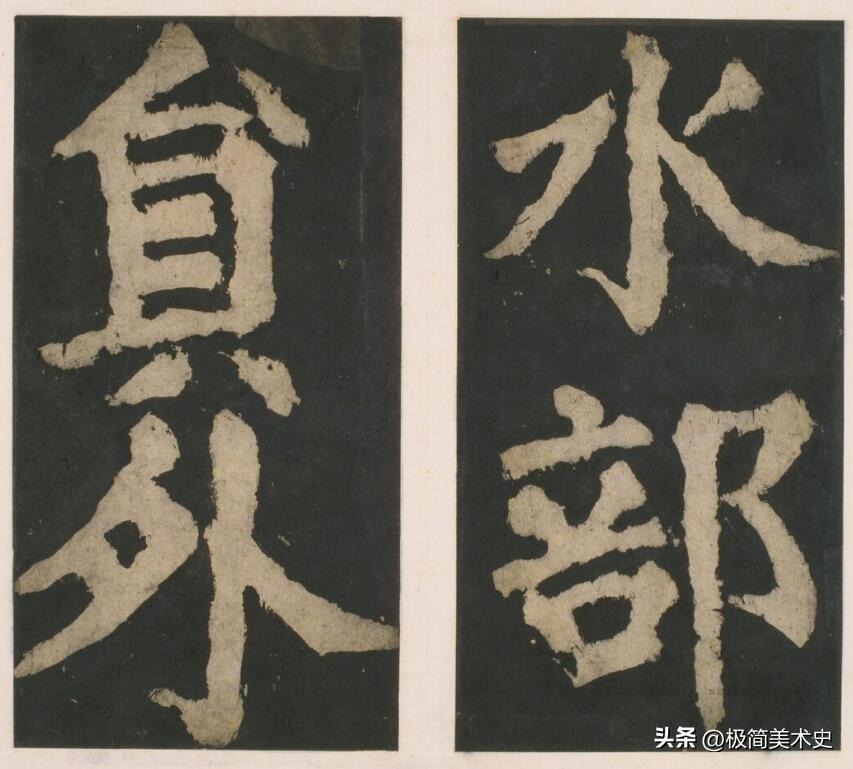 水部
貟外
头条 @极简美术史